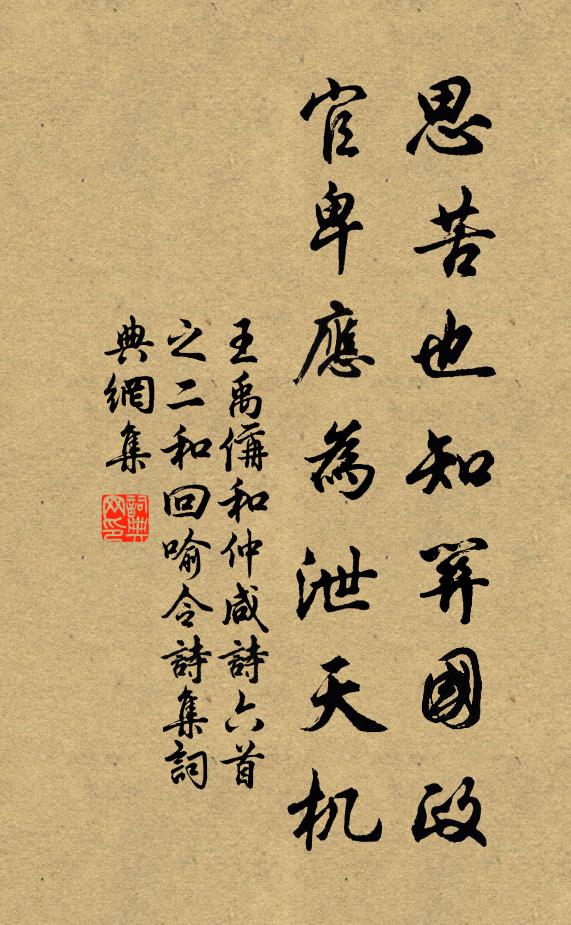 思苦也知関國政
官卑應為泄天机
王禹偁和仲咸詩六首
之二和回喻令詩集詞
典網集
詞典
网印